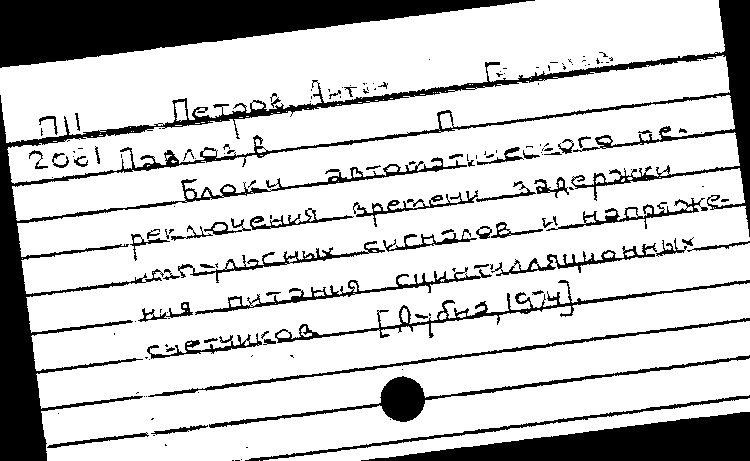 П11 Петров, Антон
2061 Павлов, В П
Блоки автоматического пе-
реключения времени задержки
импульсных сигналов и напряже-
ния питания сцинтилляционных
счетчиков [Дубна, 1974].